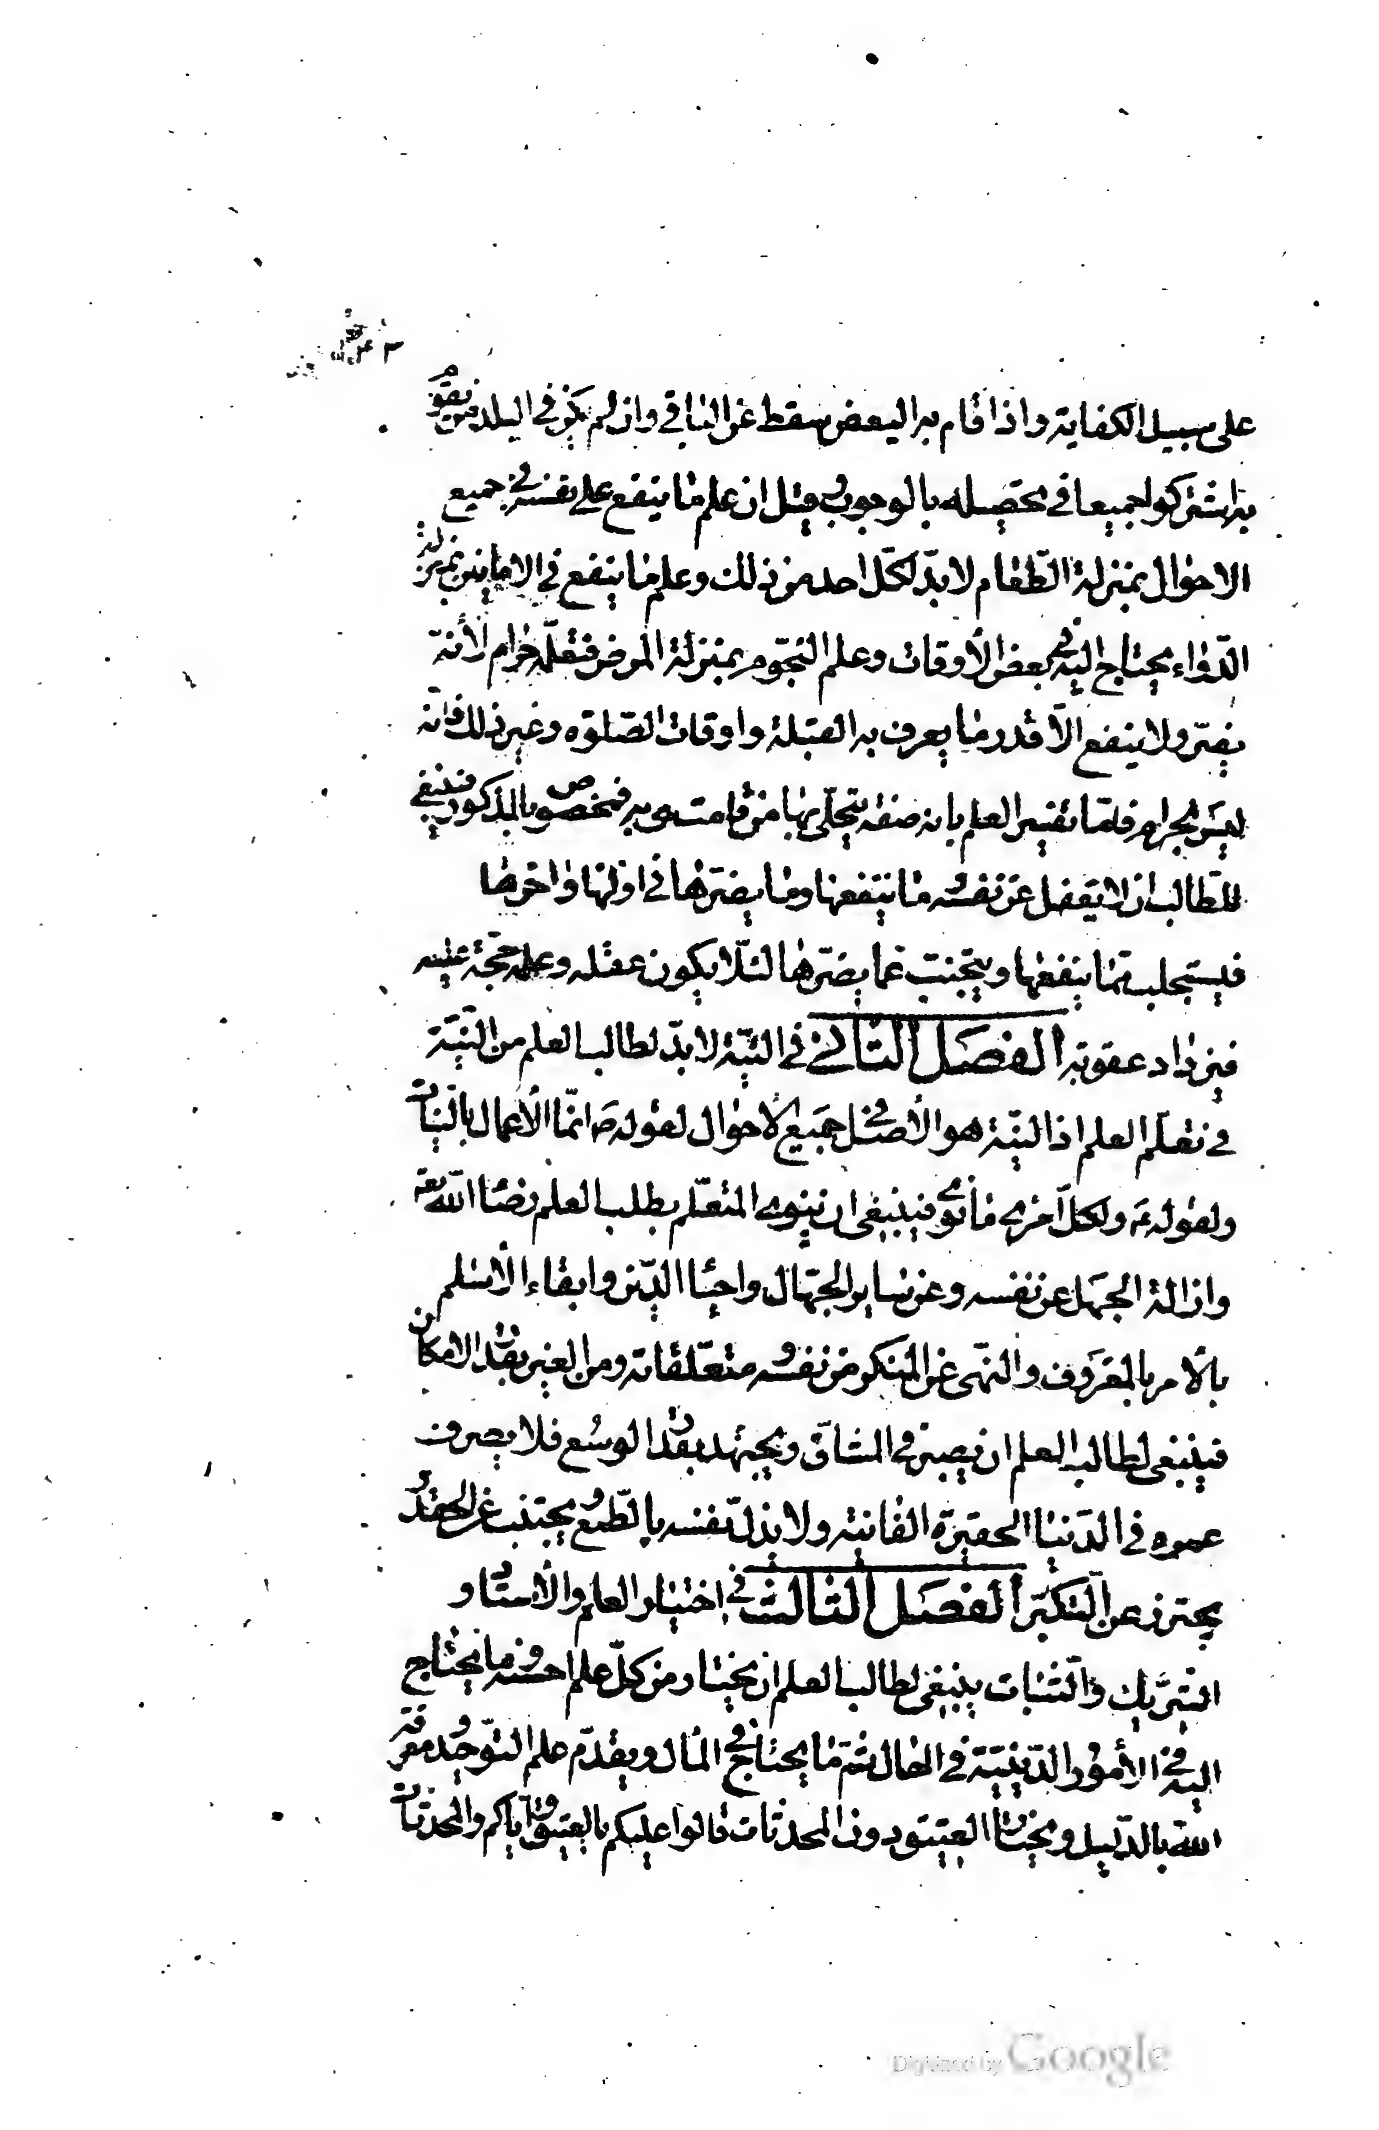 على سبيل الكفاية واذا قام به البعض سقط عن الباقي وان لم يكن في البلد من يقوم
به اشتركوا جميعا في تحصيله بالوجوب وقيل ان علم ما ينفع على نفسه في جميع
الاحوال بمنزلة الطّعام لا بدّ لكلّ احد من ذلك وعلم ما ينفع في الاحايين بمنزلة
الدّواء يحتاج اليه في بعض الأوقات وعلم النجّوم بمنزلة المرض فتعلّمه حرام لأنّه
يضرّ ولا ينفع الاّ قدر ما يعرف به القبلة واوقات الصّلوة وغير ذلك فانّه
ليس بحرام فامّا تفسير العلم بانه صفة يتجلّى بها من قامت هى به فمخصوص بالمذكور فينبغي
للطّالب ان لا يغفل عن نفسه ما ينفعها وما يضرّها في اولها واخرها
فيستجلب ما ينفعها ويتجنّب عما يضرّها لئلّا يكون عقله وعلمه حجّة عليه
فيزداد عقوبة الفصل الثاني في النيّة لا بدّ لطالب العلم من النيّة
في تعلّم العلم اذ النيّة هو الأصل في جميع الاحوال لقوله ص انّما الأعمال بالنيّات
ولقوله ع ولكلّ امرئ ما نوى فينبغى ان ينوى المتعلّم بطلب العلم رضا اللّه تعـ
وازالة الجهل عن نفسه وعن ساير الجهّال واحيا الدّين وابقاء الأسلم
بالأمر بالمعروف والنهّى عن المنكر من نفسه ومتعلّقاته ومن الغير بقدر الامكان
فينبغى لطالب العلم ان يصبر في المشاقّ ويجتهد بقدر الوسع فلا يصرف
عمره في الدّنيا الحقيرة الفانية ولا يذلّ نفسه بالطّمع ويجتنب عن الحقد
يحترز عن التكبّر الفصل الثالث في اختيار العلم والأستاد و
الشّريك والثّبات ينبغى لطالب العلم ان يختار من كلّ علم احسنه وما يحتاج
اليه في الأمور الدّينيّة في الحال ثمّ ما يحتاج في المأل ويقدّم علم التوّحيد ومعرفة
اللّه بالدّليل ويختار العتيق دون المحدثات قالوا عليكم بالعتيق وايّاكم والمحدثات
Digitized by Google